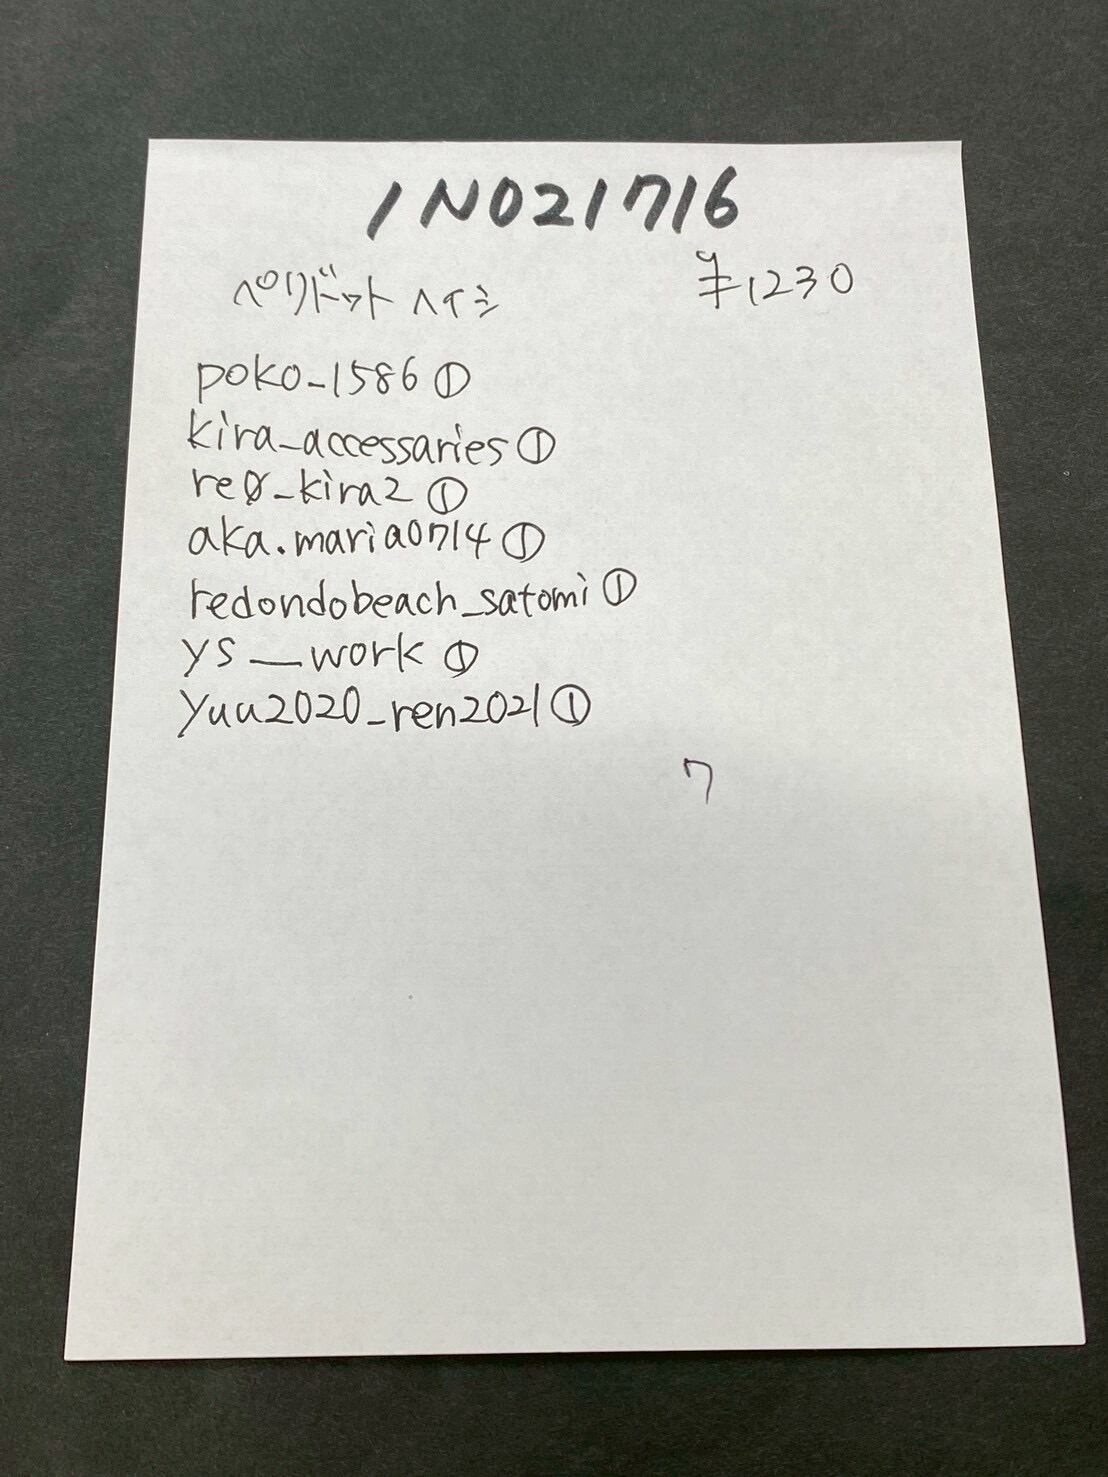 1N021716
ペリドット ヘイシ ¥1230
poko_1586①
kira_accessaries①
re0_kira2①
aka.maria0714①
redondobeach_satomi①
ys__work①
yuu2020_ren2021①
7